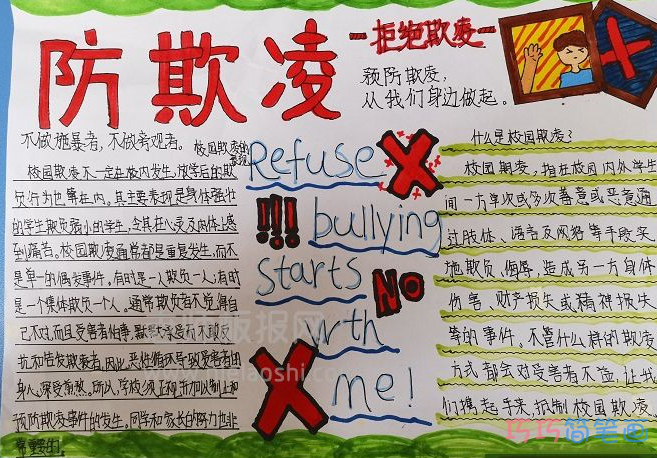 防欺凌
拒绝欺凌
预防欺凌,
从我们身边做起。
不做施暴者,不做旁观者。
校园欺凌的
表现
校园欺凌不一定在校内发生,放学后的欺
负行为也算在内。其主要表现是身体强壮
的学生欺负弱小的学生,令其在心灵及肉体上感
到痛苦。校园欺凌通常都是重复发生,而不
是单一的偶发事件。有时是一人欺负一人;有时
是一个集体欺负一个人。通常欺负者不觉得自
己不对,而且受害者怕事,默默承受而不敢反
抗和告发欺凌者,因此,恶性循环导致受害者的
身心深受煎熬。所以,学校须正视并加以制止和
预防欺凌事件的发生。同学和家长的努力也非
常重要的。
Refuse
bullying
starts
NO
me!
什么是校园欺凌?
校园欺凌,指在校园内外学生
间一方单次或多次蓄意或恶意通
过肢体、语言及网络等手段实
施欺负、侮辱,造成另一方身体
伤害、财产损失或精神损失
等的事件。不管什么样的欺凌
方式都会对受害者不益,让我
们携起手来,抵制校园欺凌。
巧巧简笔画